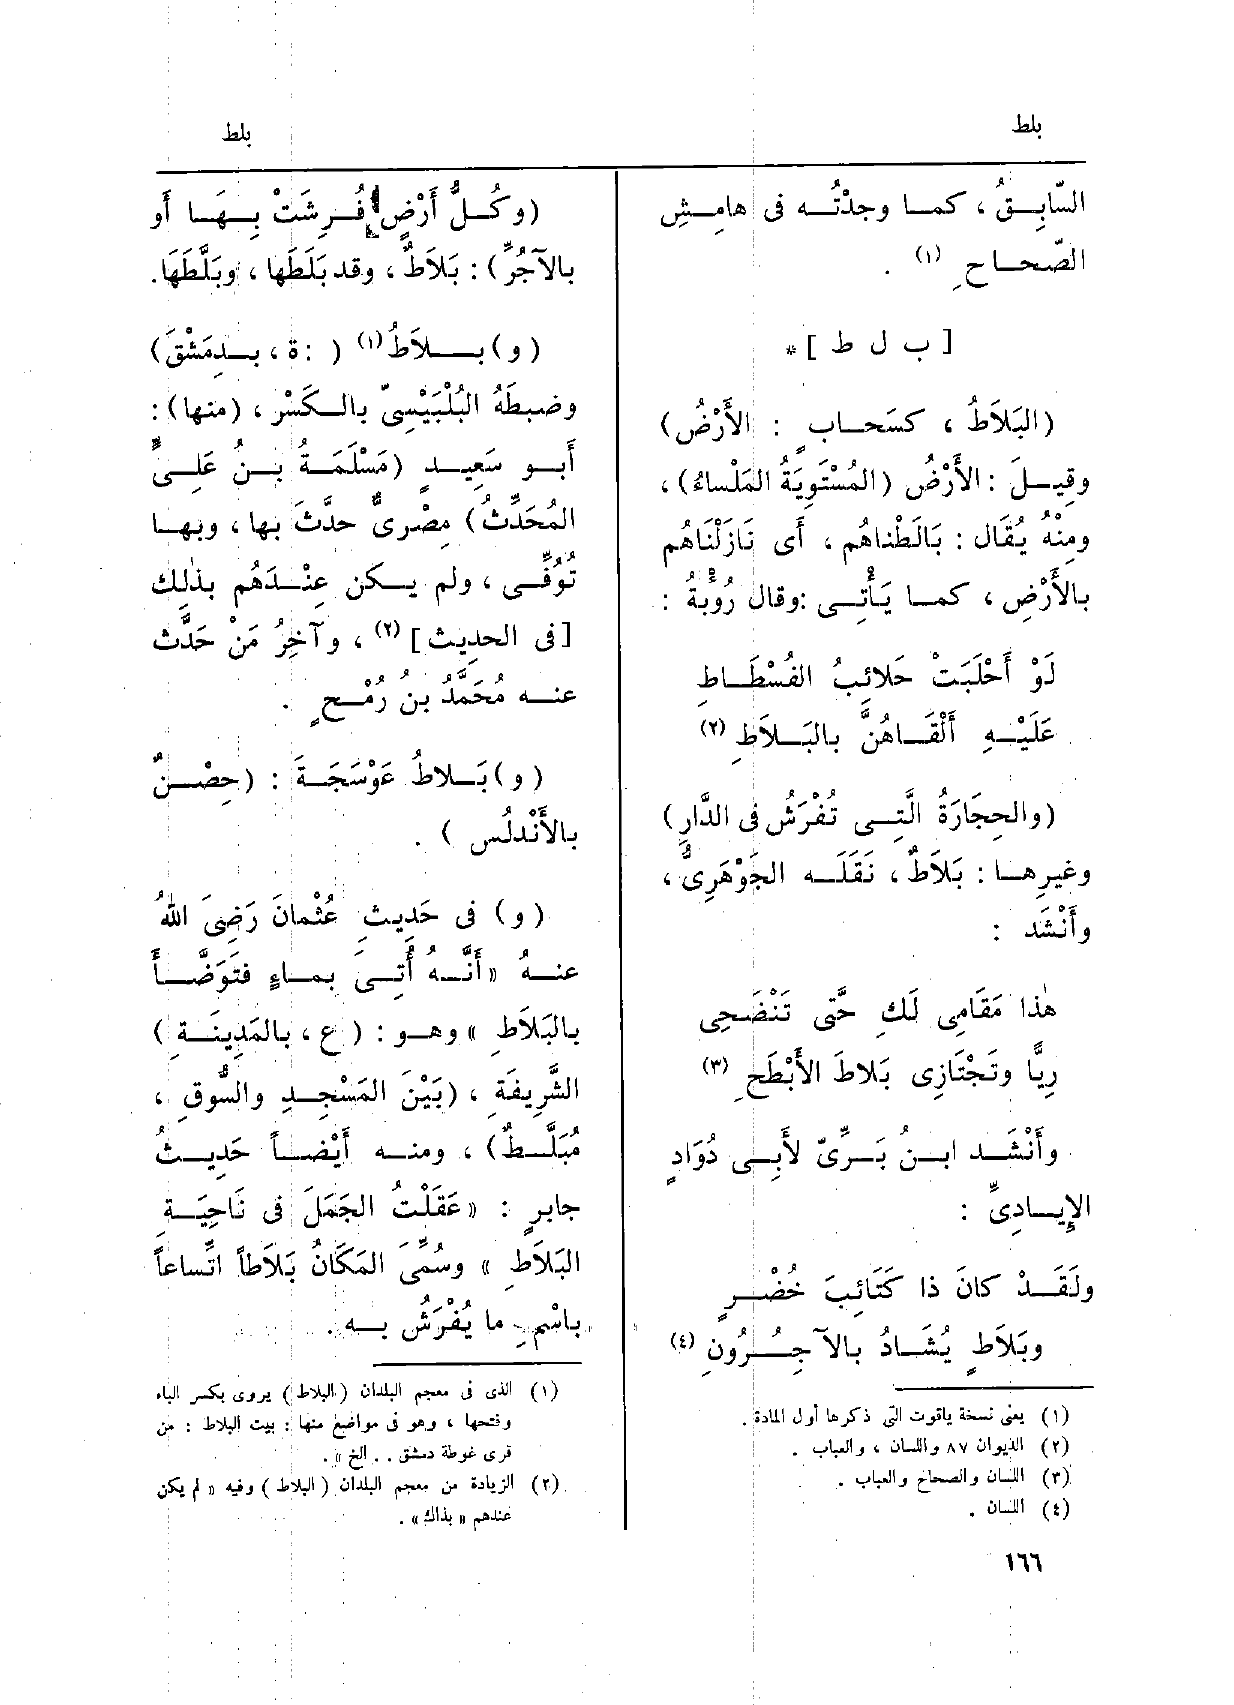 بلط
بلط
السّابِقُ ، كما وجدْتُه فى هامِشِ
الصّحاحِ (١) .
[ ب ل ط ] *
(البَلاَطُ ، كسَحابٍ : الأَرْضُ)
وقِيلَ : الأَرْضُ (المُسْتَوِيَةُ المَلْساءُ) ،
ومِنْهُ يُقَال : بَالَطْناهُم ، أَى نَازَلْنَاهُم
بالأَرْضِ ، كما يَأْتِى : وقال رُؤْبةُ :
لَوْ أَحْلَبَتْ حَلائِبُ الفُسْطَاطِ
عَلَيْهِ أَلْقَاهُنَّ بالبَلاَطِ (٢)
(والحِجَارَةُ الَّتِى تُفْرَشُ فى الدَّارِ)
وغيرِها : بَلاَطٌ ، نَقَلَه الجَوْهَرِىُّ ،
وأَنْشَد :
هٰذا مَقَامِى لَكِ حَتَّى تَنْضَحِى
رِيًّا وتَجْتَازِى بَلاطَ الأَبْطَحِ (٣)
وأَنْشَد ابنُ بَرِّىّ لأَبِى دُوَادٍ
الإِيادِىِّ :
ولَقَدْ كانَ ذا كَتَائِبَ خُضْرٍ
وبَلاَطٍ يُشَادُ بالآجِرُونِ (٤)
(١) يعنى نسخة ياقوت التى ذكرها أول المادة .
(٢) الديوان ٨٧ واللسان ، والعباب .
(٣) اللسان والصحاح والعباب .
(٤) اللسان .
١٦٦
(وكُلُّ أَرْضٍ فُرِشَتْ بِهَا أَو
بالآجُرِّ) : بَلاَطٌ ، وقد بَلَطَها ، وبَلَّطَهَا .
(و) بلاَطُ (١) ( : ة ، بدِمَشْقَ)
وضبطَهُ البُلْبَيْسِىّ بالكَسْرِ ، (منها) :
أَبو سَعِيدٍ (مَسْلَمَةُ بنُ عَلِىٍّ
المُحَدِّثُ) مِصْرِىٌّ حدَّثَ بها ، وبها
تُوُفِّى ، ولم يكن عِنْدَهُم بذٰلِك
[فى الحدِيث] (٢) ، وآخِرُ مَنْ حَدَّث
عنه مُحَمَّدُ بنُ رُمْحٍ .
(و) بَلاطُ عَوْسَجَةَ : (حِصْنٌ
بالأَنْدلُسِ ) .
(و) فى حَدِيثِ عُثْمانَ رَضِىَ اللهُ
عنهُ « أَنَّهُ أُتِىَ بماءٍ فتَوَضَّأَ
بالبَلاَطِ » وهو : ( ع ، بالمَدِينَةِ )
الشَّرِيفَةِ ، (بَيْنَ المَسْجِدِ والسُّوقِ ،
مُبَلَّطٌ) ، ومنه أَيْضاً حَدِيثُ
جابرٍ : « عَقَلْتُ الجَمَلَ فى نَاحِيَةِ
البَلاَطِ » وسُمِّىَ المَكَانُ بَلاَطاً اتِّساعاً
باسْمِ ما يُفْرَشُ به .
(١) الذى فى معجم البلدان (البلاط) يروى بكسر الباء
وفتحها ، وهو فى مواضع منها : بيت البلاط : من
قرى غوطة دمشق . . الخ » .
(٢) الزيادة من معجم البلدان (البلاط) وفيه « لم يكن
عندهم « بذاك » .